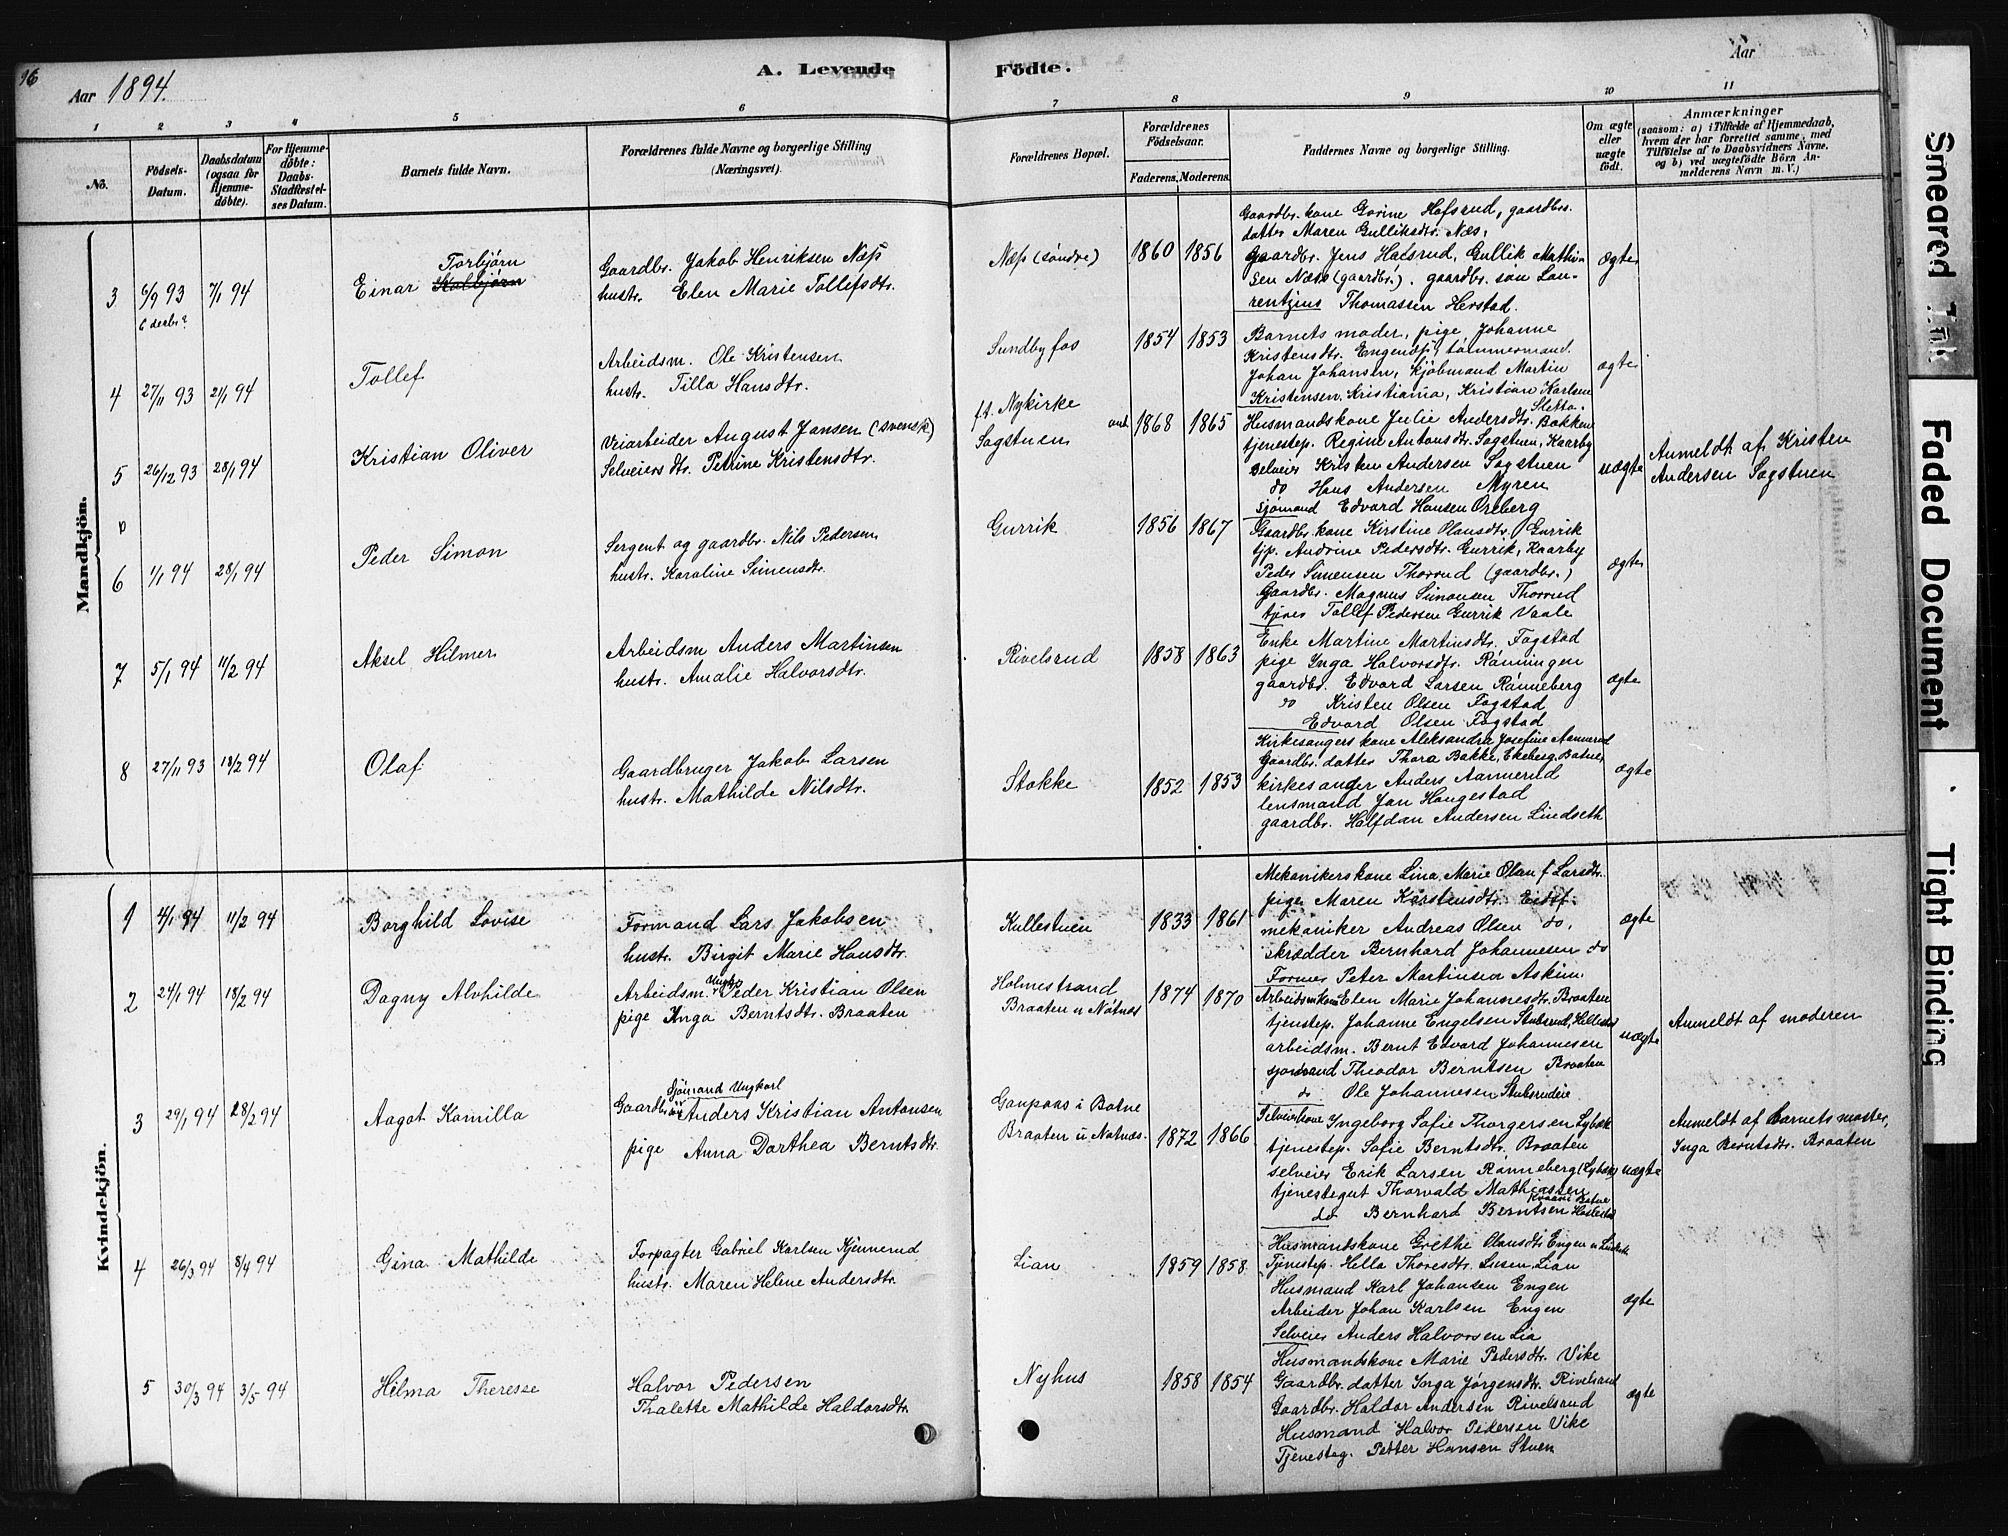 16
Aar 1894.
A. Levende Födte.
Aar
1 2 3 4 5 6 7 8 9 10 11
No.
Födsels-Datum.
Daabsdatum (ogsaa for Hjemme-döbte).
For Hjemme-döbte: Daabs-Stadfæstel-ses Datum.
Barnets fulde Navn.
Forældrenes fulde Navne og borgerlige Stilling (Næringsvei).
Forældrenes Bopæl.
Forældrenes Födselsaar.
Faderens. Moderens.
Faddernes Navne og borgerlige Stilling.
Om ægte eller uægte födt.
Anmærkninger
(saasom: a) i Tilfælde af Hjemmedaab,
hvem der har forrettet samme, med
Tilföielse af to Daabsvidners Navne.
og b) ved uægtefödte Börn An-
melderens Navn m. V.)
Mandkjön.
3 6/9 93 7/1 94
Einar Torbjørn
Gaardbr. Jakob Henriksen Næss
hustr. Elen Marie Tollefsdtr.
Næss (søndre) 1860 1856
Gaardbr. kone Gorine Hofsrud, gaardbrs.
datter Maren Gulliksdtr. Næs,
Gaardbr. Jens Halsrud, Gullik Mathi-
sen Næss (gaardbr.). gaardbr. søn Lau-
rentzius Thomassen Herstad.
ægte
4 27/11 93 21/1 94
Tollef
Arbeidsm. Ole Kristensen
hustr. Tilla Hansdtr.
Sundbyfos 1854 1853
Barnets moder, pige Johanne
Kristensdtr. Engenæs, tømmermand
Johan Johansen, kjøbmand Martin
Kristensen, Kristiania, Kristian Karlsen
Sletta.
ægte
5 26/12 93 28/1 94
Kristian Oliver
Veiarbeider August Jansen (svensk)
Selveiersdtr. Petrine Kristensdtr.
f.t. Nykirke
Sagstuen 1868 1865
Husmandskone Julie Andersdtr. Bakken
tjenestep. Regine Antonsdtr. Sagstuen, Kaarby
selveier Kristen Andersen Sagstuen
do Hans Andersen Myren
sjømand Edvard Hansen Oreberg
uægte
Anmeldt af Kristen
Andersen Sagstuen
6 1/1 94 28/1 94
Peder Simon
Sergent og gaardbr. Nils Pedersen
hustr. Karoline Simensdtr.
Gurrik 1856 1867
Gaardbr. kone Kirstine Olausdtr. Gurrik
tjp. Andrine Pedersdtr. Gurrik, Kaarby
Peder Simensen Thorrud (gaardbr.)
Gaardbr. Magnus Simonsen Thorrud
tjener Tollef Pedersen Gurrik Vaale
ægte
7 5/1 94 11/2 94
Aksel Hilmer
Arbeidsm Anders Martinsen
hustr. Amalie Halvorsdtr.
Rivelsrud 1858 1863
Enke Martine Martinsdtr. Fogstad
pige Inga Halvorsdtr. Rønningen
gaardbr. Edvard Larsen Rønneberg
do Kristen Olsen Fogstad
Edvard Olsen Fogstad
ægte
8 27/11 93 18/2 94
Olaf
Gaardbruger Jakob Larsen
hustr. Mathilde Nilsdtr.
Stokke 1852 1853
Kirkesangers kone Aleksandra Josefine Aannerud
Gaardbr. datter Thora Bakke, Ekeberg, Botne,
kirkesanger Anders Aannerud
lensmand Jan Haugestad
gaardbr. Halfdan Andersen Lindseth
ægte
Kvindekjön.
1 4/1 94 11/2 94
Borghild Lovise
Formand Lars Jakobsen
hustr. Birgit Marie Hansdtr.
Kullestuen 1833 1861
Mekanikerskone Lina Marie Olsen f. Larsdtr.
pige Maren Karstensdtr. Eidsf.
mekaniker Andreas Olsen do.
skrædder Bernhard Johannesen do
Former Peter Martinsen Askim
ægte
2 24/1 94 18/2 94
Dagny Alvhilde
Arbeidsm. Ungk. Peder Kristian Olsen
pige Inga Berntsdtr. Braaten
Holmestrand
Braaten u Nøtnæs 1874 1870
Arbeidsm kone Elen Marie Johannesdtr. Braaten
tjenestep. Johanne Engelsen Stubsrud, Hillestad
arbeidsm. Bernt Edvard Johannesen
sjømand Theodor Berntsen Braaten
do Ole Johannesen Stubsrudeie
uægte
Anmeldt af moderen
3 29/1 94 28/2 94
Aagot Kamilla
Sjömand Ungkarl
Gaardbr. Anders Kristian Antonsen
pige Anna Dorthea Berntsdtr.
Gaupaas i Botne
Braaten u Nøtnæs. 1872 1866
Selveierkone Ingeborg Sofie Thorgersen Lybæk
tjenestep. Sofie Berntsdtr. Braaten
selveier Erik Larsen Rønneberg (Lybæk)
tjenestegut Thorvald Mathiassen
do Bernhard Berntsen
uægte
Anmeldt af Barnets moster,
Inga Berntsdtr. Braaten
4 26/3 94 8/4 94
Gina Mathilde
Forpagter Gabriel Karlsen Kjennerud
hustr. Maren Helene Andersdtr.
Lian 1859 1858
Husmandskone Grethe Olausdtr Engen
Tjenestep. Hella Thoresdtr. Susen Lian
Husmand Karl Johansen Engen
Arbeider Johan Karlsen Engen
Selveier Anders Halvorsen Lia
ægte
5 30/3 94 3/5 94
Hilma Therese
Halvor Pedersen
Thalette Mathilde Haldorsdtr.
Nyhus 1858 1854
Husmandskone Marie Pedersdtr. Vike
Gaardbr. datter Inga Jørgensdtr. Rivelsrud
Gaardbr. Haldor Andersen Rivelsrud
Husmand Halvor Pedersen Vike
Tjenesteg. Petter Hansen Stuen
ægte
Smeared Ink
Faded Document
Tight Binding